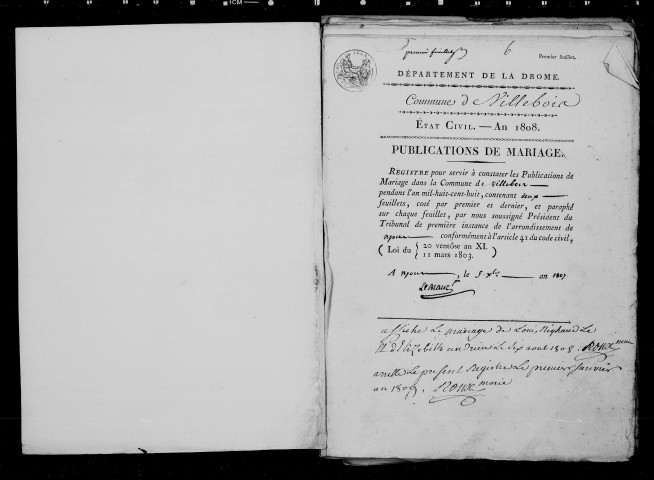 premier feuillet
6
Premier feuillet.
DÉPARTEMENT DE LA DROME.
Commune de Villebois
ÉTAT CIVIL. — AN 1808.
PUBLICATIONS DE MARIAGE.
REGISTRE pour servir à constater les Publications de
Mariage dans la Commune de villebois
pendant l'an mil-huit-cent-huit, contenant
feuillets, coté par premier et dernier, et paraphé
sur chaque feuillet, par nous soussigné Président du
Tribunal de première instance de l'arrondissement de
nyons conformément à l'article 41 du code civil,
( Loi du { 20 ventôse an XI. )
11 mars 1803.
A nyons, le 5 Xbre an 1807
affiché Le mariage de Loui Le
Le dix aout 1808. ROUX maire
arretté Le present Registre Le premier Janvier
an 1809. ROUX maire